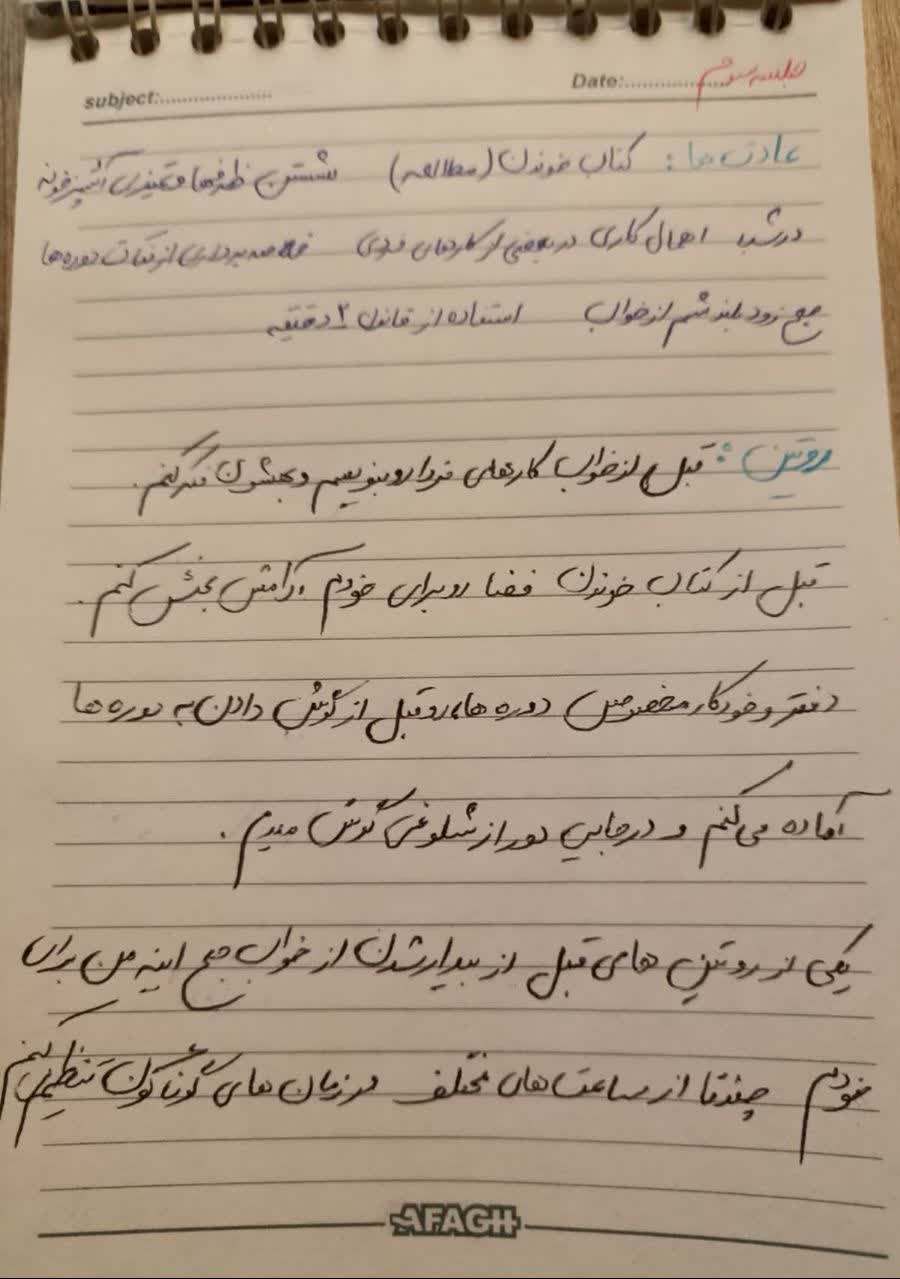 subject:.................... Date:.................... جلسه سوم
عادت ها: کتاب خوندن (مطالعه) شستن ظرفها و تمیزی آشپزخونه
در شب اهمال کاری در بعضی از کارهای فردی خلاصه برداری از نکات دوره ها
صبح زود بلند شم از خواب استفاده از قانون ۲ دقیقه
روتین: قبل از خواب کارهای فردا رو بنویسم و بهشون فکر کنم.
قبل از کتاب خوندن فضا رو برای خودم آرامش بخش کنم.
دفتر و خودکار مخصوص دوره ها رو قبل از گوش دادن به دوره ها
آماده می کنم و در جایی دور از شلوغی گوش میدم.
یکی از روتین های قبل از بیدار شدن از خواب صبح اینه من برای
خودم چندتا از ساعت های مختلف در زمان های گوناگون تنظیم می کنم
AFAGH